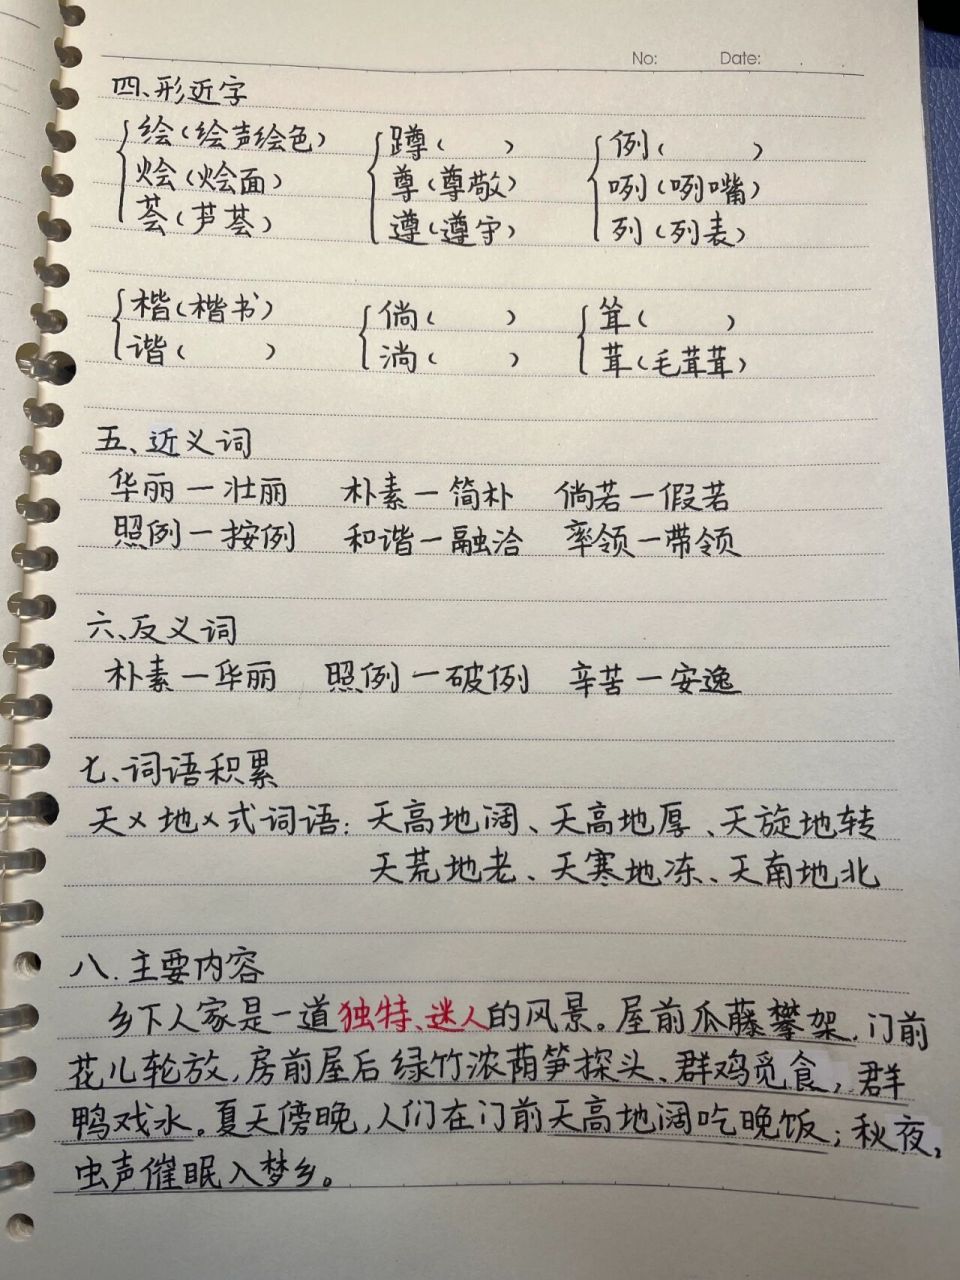 No: Date:
四、形近字
绘(绘声绘色) 蹲( ) 例( )
烩(烩面) 尊(尊敬) 咧(咧嘴)
荟(芦荟) 遵(遵守) 列(列表)
楷(楷书) 倘( ) 耸( )
谐( ) 淌( ) 茸(毛茸茸)
五、近义词
华丽—壮丽 朴素—简朴 倘若—假若
照例—按例 和谐—融洽 率领—带领
六、反义词
朴素—华丽 照例—破例 辛苦—安逸
七、词语积累
天×地×式词语:天高地阔、天高地厚、天旋地转
天荒地老、天寒地冻、天南地北
八.主要内容
乡下人家是一道独特、迷人的风景。屋前瓜藤攀架,门前
花儿轮放,房前屋后绿竹浓荫笋探头、群鸡觅食,群
鸭戏水。夏天傍晚,人们在门前天高地阔吃晚饭;秋夜,
虫声催眠入梦乡。